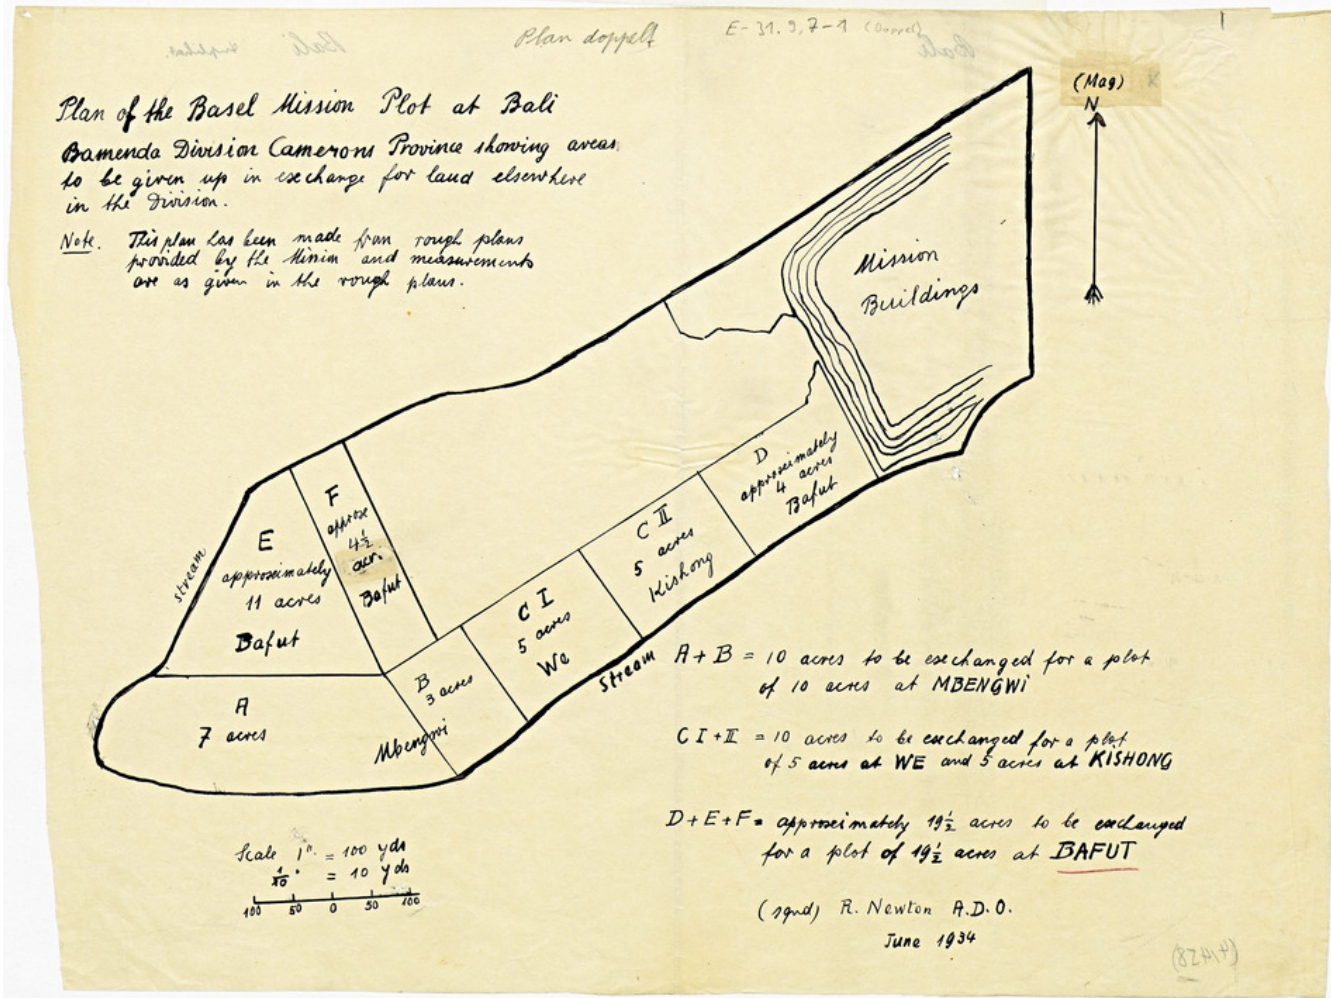 Plan doppelt
E-31.9,7-1 (Doppel)
Bali
Bali
Plan of the Basel Mission Plot at Bali
Bamenda Division Camerons Province showing areas
to be given up in exchange for land elsewhere
in the Division.
Note. This plan has been made from rough plans
provided by the Mission and measurements
are as given in the rough plans.
(Mag)
N
Mission
Buildings
D
approximately
4 acres
Bafut
C II
5 acres
Kishong
C I
5 acres
We
B
3 acres
Mbengwi
F
approx
4½
acr.
Bafut
E
approximately
11 acres
Bafut
A
7 acres
stream
stream
A + B = 10 acres to be exchanged for a plot
of 10 acres at MBENGWI
C I + II = 10 acres to be exchanged for a plot
of 5 acres at WE and 5 acres at KISHONG
D + E + F = approximately 19½ acres to be exchanged
for a plot of 19½ acres at BAFUT
(sgnd) R. Newton A.D.O.
June 1934
Scale 1" = 100 yds
1/10" = 10 yds
100 50 0 50 100